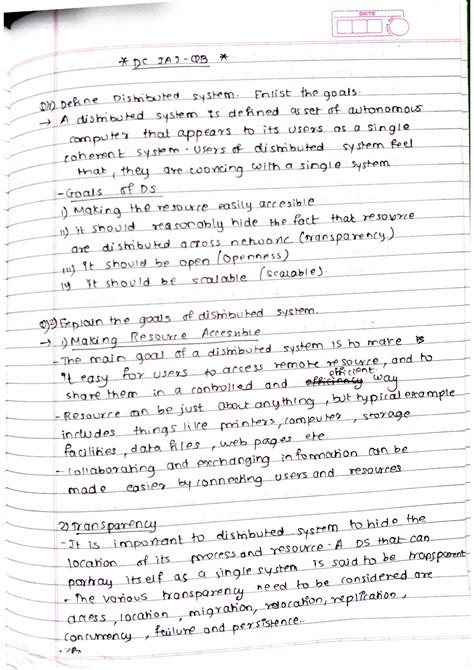 DATE
* DC IA1-QB *
Q1) Define Distributed system. Enlist the goals.
→ A distributed system is defined as set of autonomous
computer that appears to its users as a single
coherent system. Users of distributed system feel
that, they are working with a single system
- Goals of DS
i) Making the resource easily accesible
ii) it should reasonably hide the fact that resource
are distributed across network (transparency)
iii) it should be open (openness)
iv it should be scalable (scalable).
Q2) Explain the goals of distributed system.
→ 1) Making Resource Accesible
- The main goal of a distributed system is to make
it easy for users to access remote resource, and to
share them in a controlled and efficient way
- Resource can be just about anything, but typical example
includes things like printers, computer, storage
facilities, data files, web pages etc
- collaborating and exchanging information can be
made easier by connecting users and resources
2) Transparency
- It is important to distributed system to hide the
location of its process and resource. A DS that can
portray itself as a single system is said to be transparent
- The various transparency need to be considered are
access, location, migration, relocation, replication,
concurrency, failure and persistence..